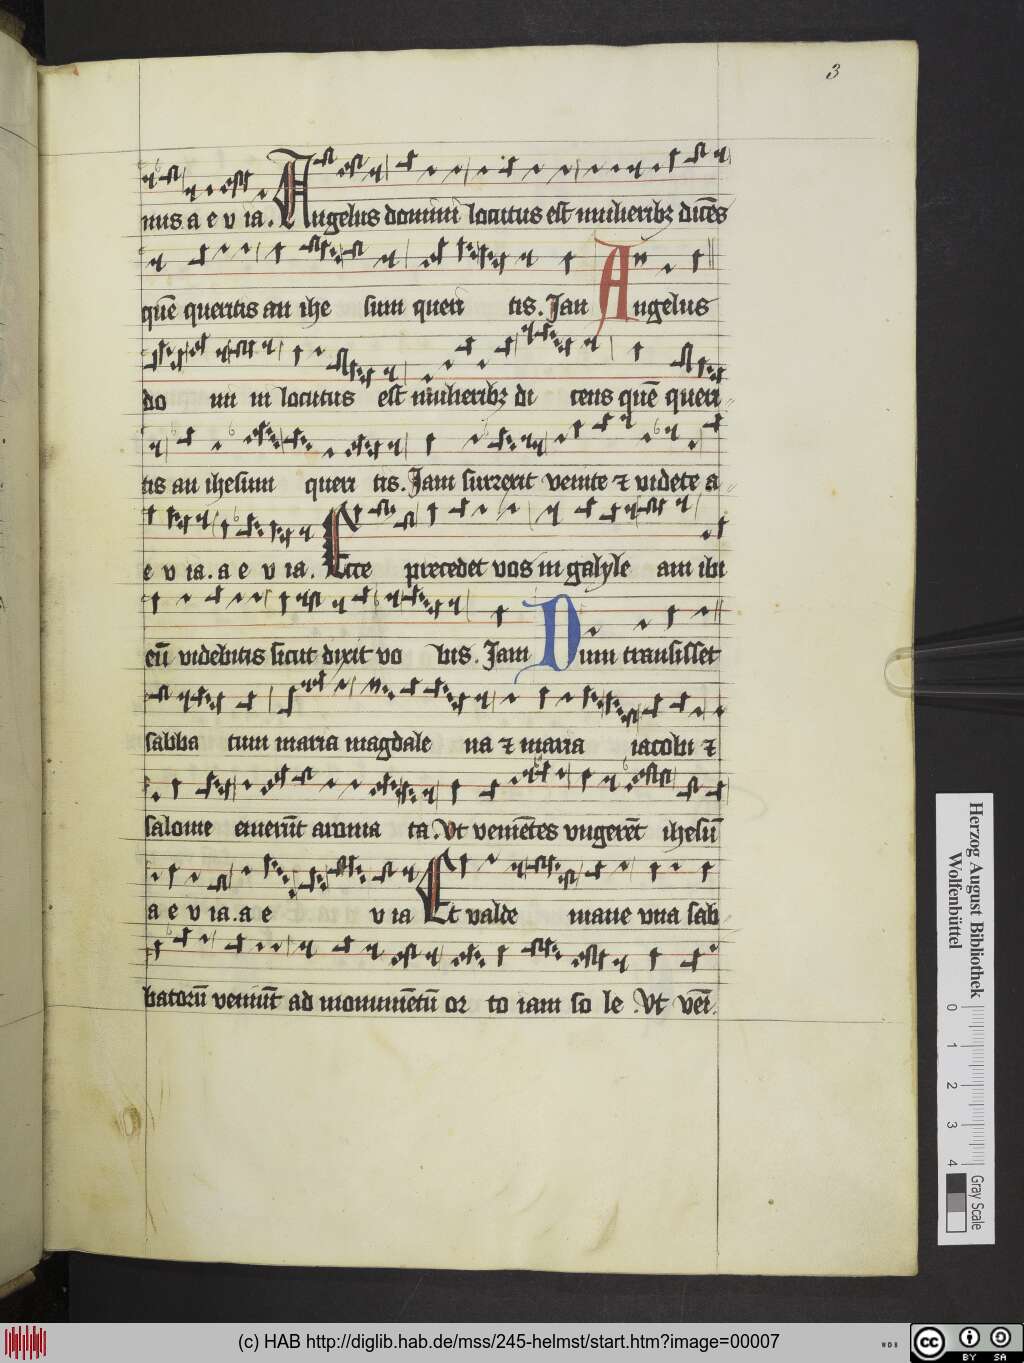 3
nus a e v ia. Angelus domini locutus est mulieribꝫ dicēs
quē queritis an ihe sum queri tis. Jam Angelus
do mi ni locutus est mulieribꝫ di cens quē queri
tis an ihesum queri tis. Jam surrexit venite ⁊ videte a
e v ia. a e v ia. Ecce precedet vos in galyle am ibi
eū videbitis sicut dixit vo bis. Jam Dum transisset
sabba tum maria magdale na ⁊ maria iacobi ⁊
salome emerūt aroma ta. Vt veniētes vngerēt ihesū
a e v ia. a e v ia Et valde mane vna sab
batorū veniūt ad monumētū or to iam so le .Vt veī.
Herzog August Bibliothek
Wolfenbüttel
0 1 2 3 4
Gray Scale
(c) HAB http://diglib.hab.de/mss/245-helmst/start.htm?image=00007
WDB
CC BY SA